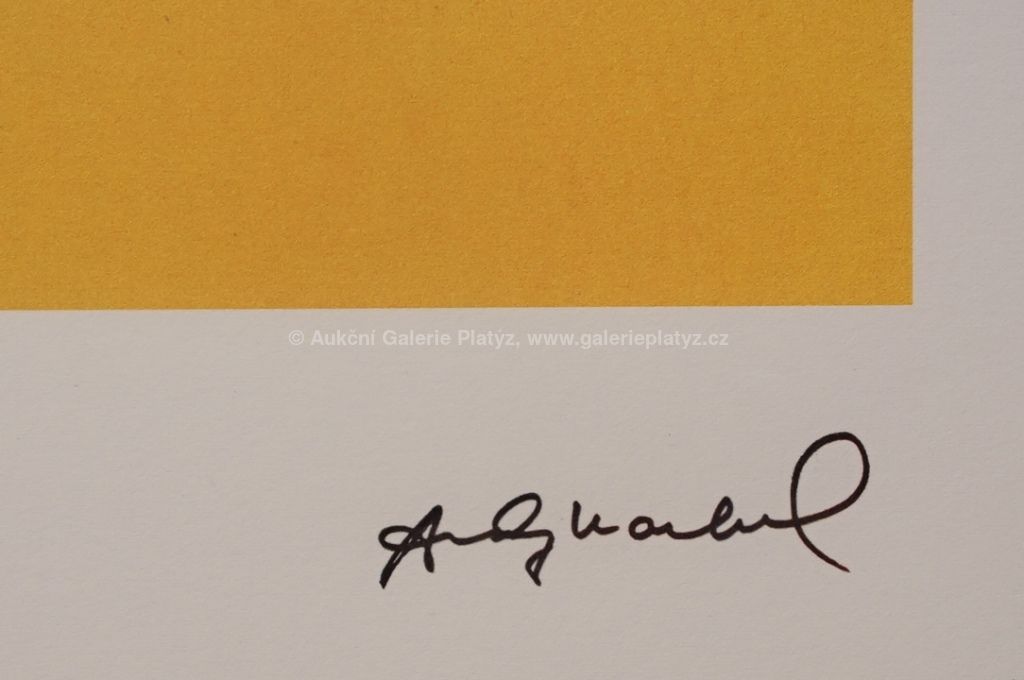 © Aukční Galerie Platýz, www.galerieplatyz.cz
Andy Warhol